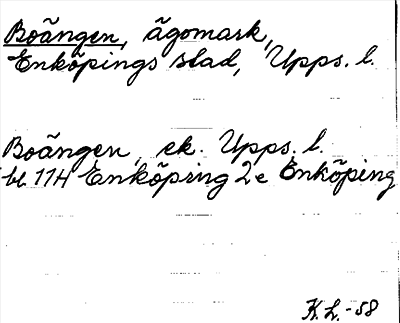 Boängen, ägomark,
Enköpings stad, Upps. l.
Boängen, ek. Upps. l.
bl. 11H Enköping 2e Enköping
K.L.-58